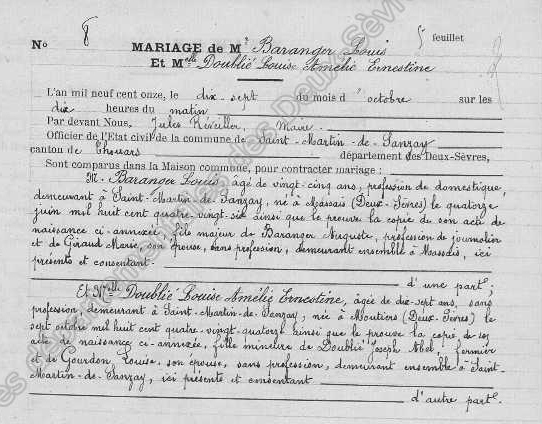 N° 8
5 feuillet
MARIAGE de Mr Baranger Louis
Et Melle Doublié Louise Amélie Ernestine
L'an mil neuf cent onze, le dix-sept du mois d'octobre sur les
dix heures du matin
Par devant Nous, Jules Réveiller, Maire
Officier de l'Etat civil de la commune de Saint-Martin-de-Sanzay,
canton de Thouars département des Deux-Sèvres,
Sont comparus dans la Maison commune, pour contracter mariage :
M. Baranger Louis, âgé de vingt-cinq ans, profession de domestique,
demeurant à Saint-Martin-de-Sanzay, né à Massais (Deux-Sèvres) le quatorze
juin mil huit cent quatre-vingt-six ainsi que le prouve la copie de son acte de
naissance ci-annexée, fils majeur de Baranger Auguste, profession de journalier
et de Giraud Marie, son épouse, sans profession, demeurant ensemble à Massais, ici
présents et consentant.
d'une part;
Et Melle Doublié Louise Amélie Ernestine, âgée de dix-sept ans, sans
profession, demeurant à Saint-Martin-de-Sanzay, née à Moutiers (Deux-Sèvres) le
sept octobre mil huit cent quatre-vingt-quatorze ainsi que le prouve la copie de son
acte de naissance ci-annexée, fille mineure de Doublié Joseph Abel, fermier
et de Gourdon Louise, son épouse, sans profession, demeurant ensemble à Saint-
Martin-de-Sanzay, ici présents et consentant
d'autre part.